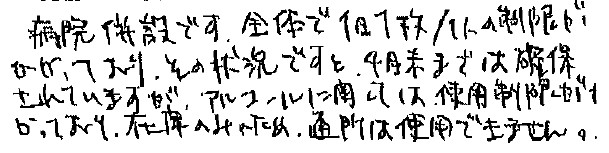 病院併設です。全体で1日1枚/1人の制限が
かかっており、その状況ですと、4月末までは確保
されていますが、アルコールに関しては使用制限がか
かっており、在庫のみのため、通所は使用できません。